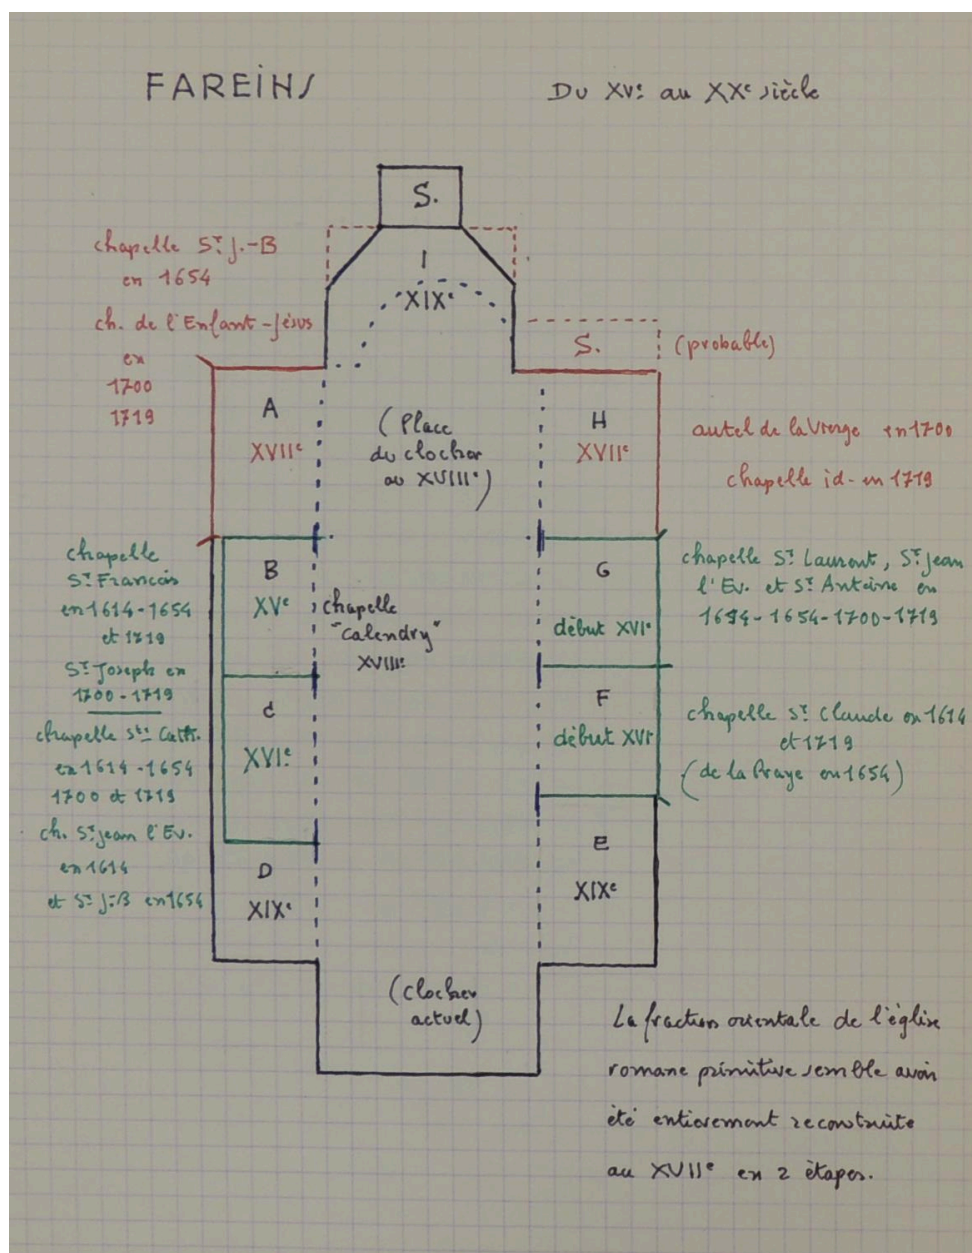 FAREINS
Du XVe au XXe siècle
S.
I
XIXe
chapelle St J.-B
en 1654
ch. de l'Enfant-Jésus
en
1700
1719
S.
(probable)
A
XVIIe
(Place
du clocher
au XVIIIe)
H
XVIIe
autel de la Vierge en 1700
chapelle id- en 1719
chapelle
St Francois
en 1614-1654
et 1719
St Joseph en
1700-1719
B
XVe
chapelle
"Calendry"
XVIIIe
G
début XVIe
chapelle St Laurent, St jean
l'Ev. et St Antoine en
1614-1654-1700-1719
chapelle Ste Cath.
en 1614-1654
1700 et 1719
ch. St jean l'Ev.
en 1614
et St J-B en 1654
C
XVIe
F
début XVIe
chapelle St Claude en 1614
et 1719
(de la Praye en 1654)
D
XIXe
E
XIXe
(clocher
actuel)
La fraction orientale de l'église
romane primitive semble avoir
été entièrement reconstruite
au XVIIe en 2 étapes.